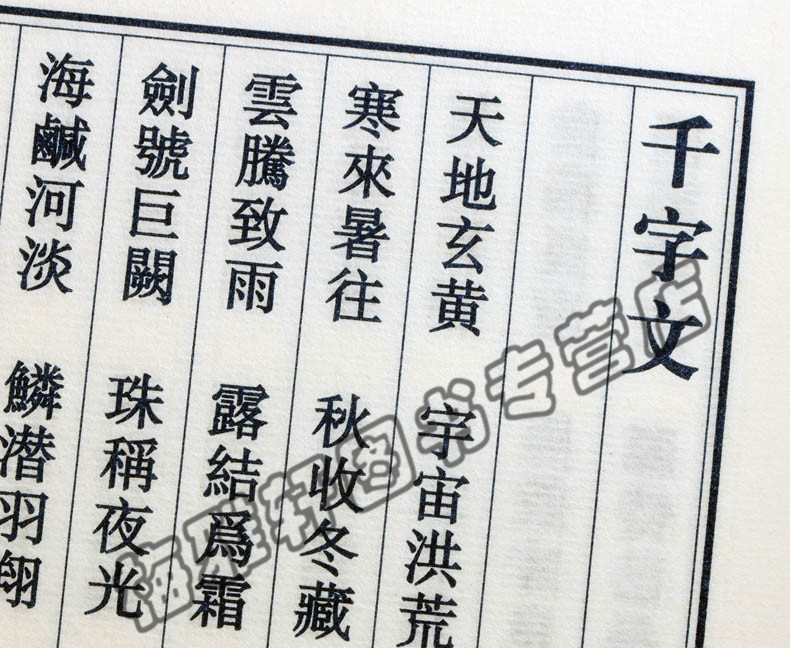 千字文
天地玄黄 宇宙洪荒
寒來暑往 秋收冬藏
雲騰致雨 露結爲霜
劍號巨闕 珠稱夜光
海鹹河淡 鱗潜羽翔
雅轩图书专营店